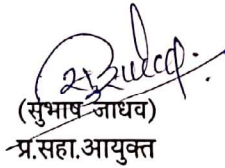 (सुभाष जाधव)
प्र.सहा.आयुक्त